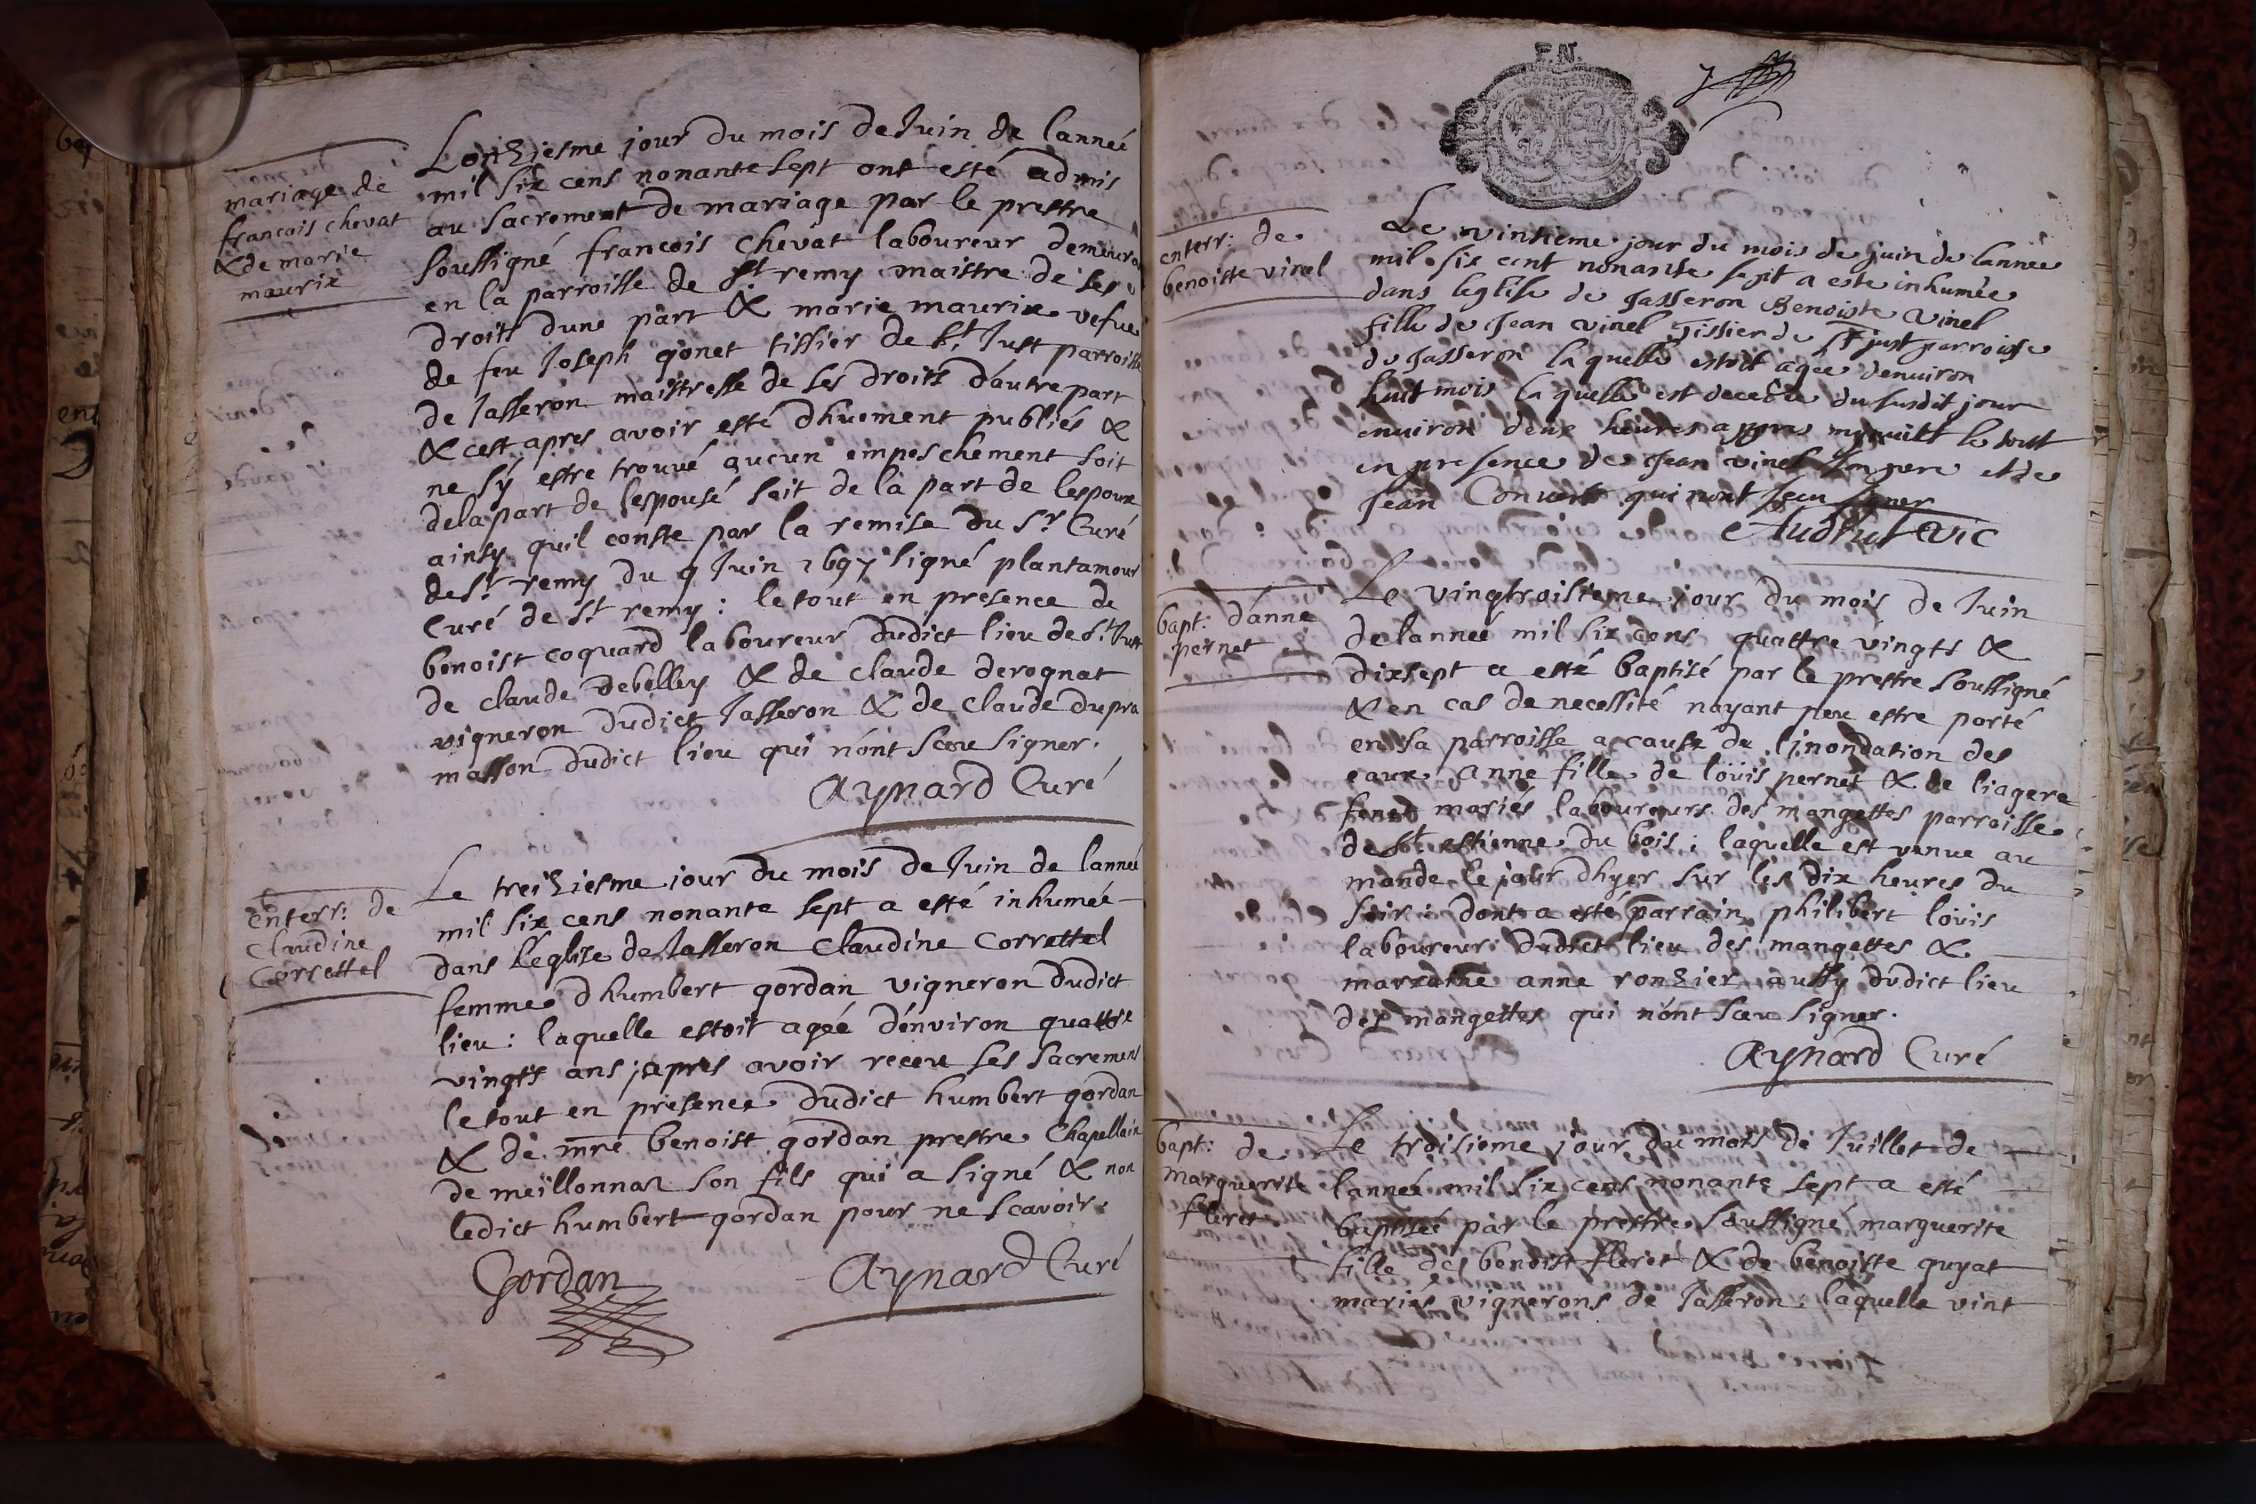 mariage de
francois chevat
& de marie
maurix
Lonziesme jour du mois de Juin de lanneé
mil six cens nonante sept ont esté admis
au sacrement de mariage par le prestre
soussigné francois chevat laboureur demeura
en la parroisse de St remy maistre de ses
droits dune part & marie maurix vefue
de feu Joseph gonet tissier de St Just parroisse
de Jasseron maistresse de ses droits dautre part
& cest apres avoir esté dhuement publiés &
ne sÿ estre trouvé aucun empeschement soit
de la part de lespousé soit de la part de lespoux
ainsy quil conste par la remise du Sr Curé
de St remy du 9 Juin 1697 signé plantamour
Curé de St remy : le tout en presence de
benoist coquard laboureur dudict lieu de St Just
de claude debelley & de claude derognat
vigneron dudict Jasseron & de claude dupra
masson dudict lieu qui nont sceu signer.
Aynard Curé
enterr: de
Claudine
Correttel
Le treiziesme jour du mois de Juin de lanneé
mil six cens nonante sept a esté inhumeé
dans leglize de Jasseron Claudine Correttel
femme dhumbert gordan vigneron dudict
lieu : laquelle estoit ageé denviron quattre
vingts ans ; apres avoir receu ses sacremens
le tout en presence dudict humbert gordan
& de mre benoist gordan prestre Chapellain
de meillonnaz son fils qui a signé & non
ledict humbert gordan pour ne scavoir.
Gordan Aynard Curé
F.N.
enterr: de
benoiste vinel
Le vintieme jour du mois de juin de lannée
mil six cent nonante sept a este inhumée
dans leglise de Jasseron Benoiste vinel
fille de Jean vinel Tissier de St just parroisse
de Jasseron laquelle estoit agée denuiron
huit mois laquelle est decedée du susdit jour
enuiron deux heures appres mynuitt le tout
en presence de Jean vinel son pere et de
Jean Convert qui nont sceu signer
vic
bapt: danne
pernet
Le vingtroisieme jour du mois de Juin
de lanneé mil six cens quattre vingts &
dixsept a esté baptisé par le prestre soussigné
& en cas de necessité nayant peu estre porté
en sa parroisse a cause de linondation des
eaux anne fille de loüis pernet & de liagere
mariés laboureurs des mangettes parroisse
de St estienne du bois ; laquelle est venue au
monde le jour dhyer sur les dix heures du
soir : dont a esté parrain philibert loüis
laboureur dudict lieu des mangettes &
marraine anne ronzier aussy dudict lieu
des mangettes qui nont sceu signer.
Aynard Curé
bapt: de
marguerite
fleret
Le troisieme jour du mois de Juillet de
lanneé mil six cens nonante sept a esté
baptiseé par le prestre soussigné marguerite
fille de benoist fleret & de benoiste guyat
mariés vignerons de Jasseron : laquelle vint